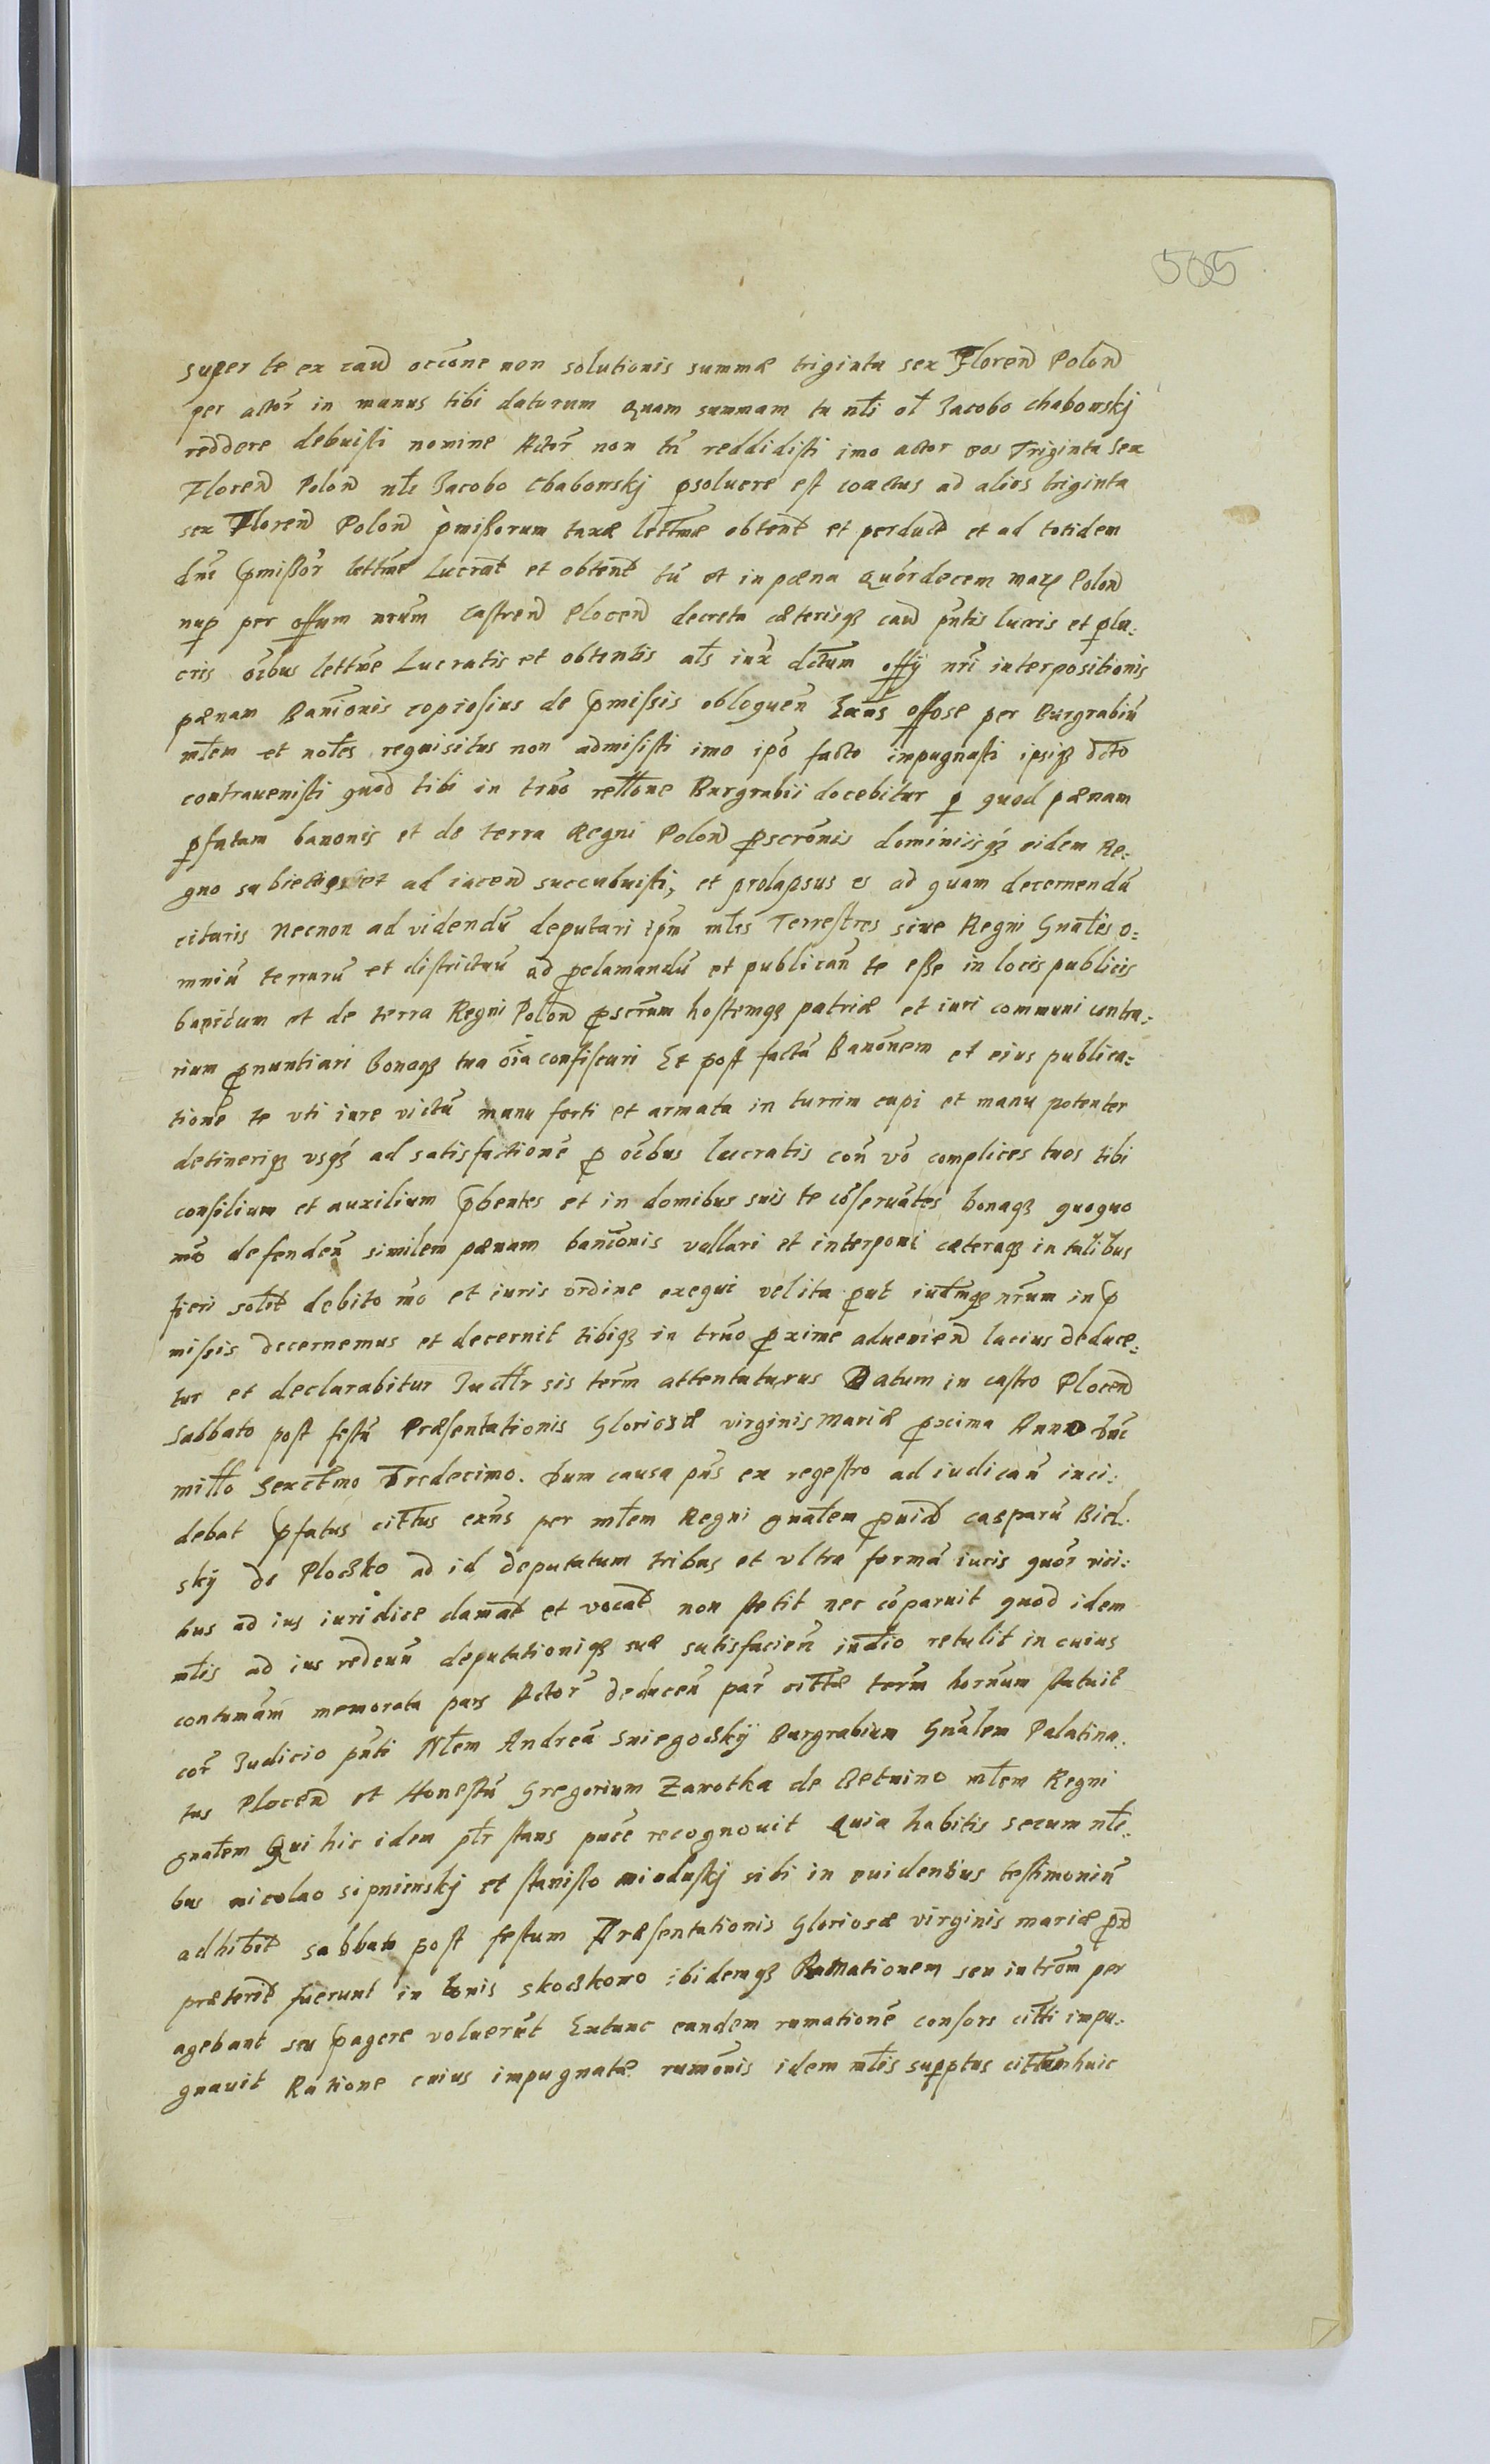 505
super te ex caus̃ occõne non solutionis summæ triginta sex Floreñ Poloñ
per actor̃ in manus tibi datorum Quam summam tu nłi oł Jacobo Chabowskj
reddere debuisti nomine Actor̃ non tñ reddidisti imo actor eos Triginta sex
Floreñ Poloñ nłi Jacobo Chabowskj ꝑsoluere est coactus ad alios triginta
sex Floreñ Poloñ p̃missorum taxæ lettme obtent̃ et perduct̃ et ad totidem
dni p̃missor̃ lettme Lucrat̃ et obtent̃ tũ et in pæna Quor̃decem marꝝ Poloñ
nuꝑ per offum nrũm Castreñ Ploceñ decreta cæterisqꝫ caus̃ pñtis lucris et ꝑlu:
cris oĩbus lettme Lucratis et obtentis ałs iux̃ dctum offÿ nrĩ interpositionis
pænam Banĩonis copiosius de p̃missis obloqueñ Exñs offose per Burgrabiũ
młem et nołes requisitus non admisisti imo ipõ facto impugnasti ipsiqꝫ dcto
contrauenisti quod tibi in trm̃o rełłone Burgrabii docebitur ꝓ quod pænam
p̃fatam banonis et de terra Regni Poloñ ꝓscrõnis dominiisqꝫ eidem Re:
gno subiectis et ad iaceñ succubuisti, et prolapsus es ad quam decernendã
citaris Necnon ad videndũ deputari ipñ młes Terrestres siue Regni Gnałes o:
mniũ terrarũ et districtuũ ad ꝓclamandũ et publicañ te esse in locis publicis
banitum et de terra Regni Poloñ ꝓscrm̃ hostemqꝫ patriæ et iuri communi contra:
rium ꝓnuntiari bonaqꝫ tua oĩa confiscari Et post factã Banõnem et eius publica:
tionẽ te vti iure victũ manu forti et armata in turrim capi et manu potenter
detineriqꝫ vsqꝫ ad satisfactionẽ ꝓ oĩbus lucratis coñ võ complices tuos tibi
consilium et auxilium p̃bentes et in domibus suis te cõseruãtes bonaqꝫ quoquo
mõ defendeñ similem pænam banĩonis vallari et interponi cæteraqꝫ in talibus
fieri solit̃ debito mõ et iuris ordine exequi vel ita ꝓut iudm̃qꝫ nrũm in p̃
missis decernemus et decernit tibiqꝫ in trm̃o ꝓxime adueñieñ lacius deduce:
tur et declarabitur Jucłłr sis term̃ attentaturus Datum in castro Ploceñ
Sabbato post festũ Præsentationis Gloriosæ virginis Mariæ ꝓxima Anno Dñi
miłło Sexcłmo Tredecimo. Dum causa pñs ex regestro ad iudicañ inci:
debat p̃fatus cittus exñs per młem Regni gnałem ꝓuid̃ Casparũ Biel:
skÿ de Ploczko ad id deputatum tribus et vltra formã iuris quor̃ vici:
bus ad ius iuridice clamat̃ et vocat̃ non stetit nec cõparuit quod idem
młis ad ius redeuñ deputationiqꝫ suæ satisfacieñ iudĩo retulit in cuius
contumãm memorata pars Actor̃ deduceñ par̃ cittæ term̃ hornum statuit
cor̃ Judicio pñti Młem Andreã Sniegoczkÿ Burgrabium Gnałem Palatina:
tus Ploceñ et Honestũ Gregorium Zawotka de młem Regni
gnałem Qui hic idem płr stans pncẽ recognouit Quia habitis secum nłi:
bus nicolao sipnienskj et stanisło mioduskj sibi in euidentius testimoniũ
adhibit̃ sabbato post festum Præsentationis Gloriosæ virginis mariæ ꝓx̃
præterit̃ fuerunt in bonis skoczkowo ibidemqꝫ Rumationem seu intrõm per
agebant seu p̃agere voluerũt Extunc eandem rumationẽ consors citti impu:
gnauit Ratione cuius impugnatæ rumõnis idem młis supꝑtus hunc